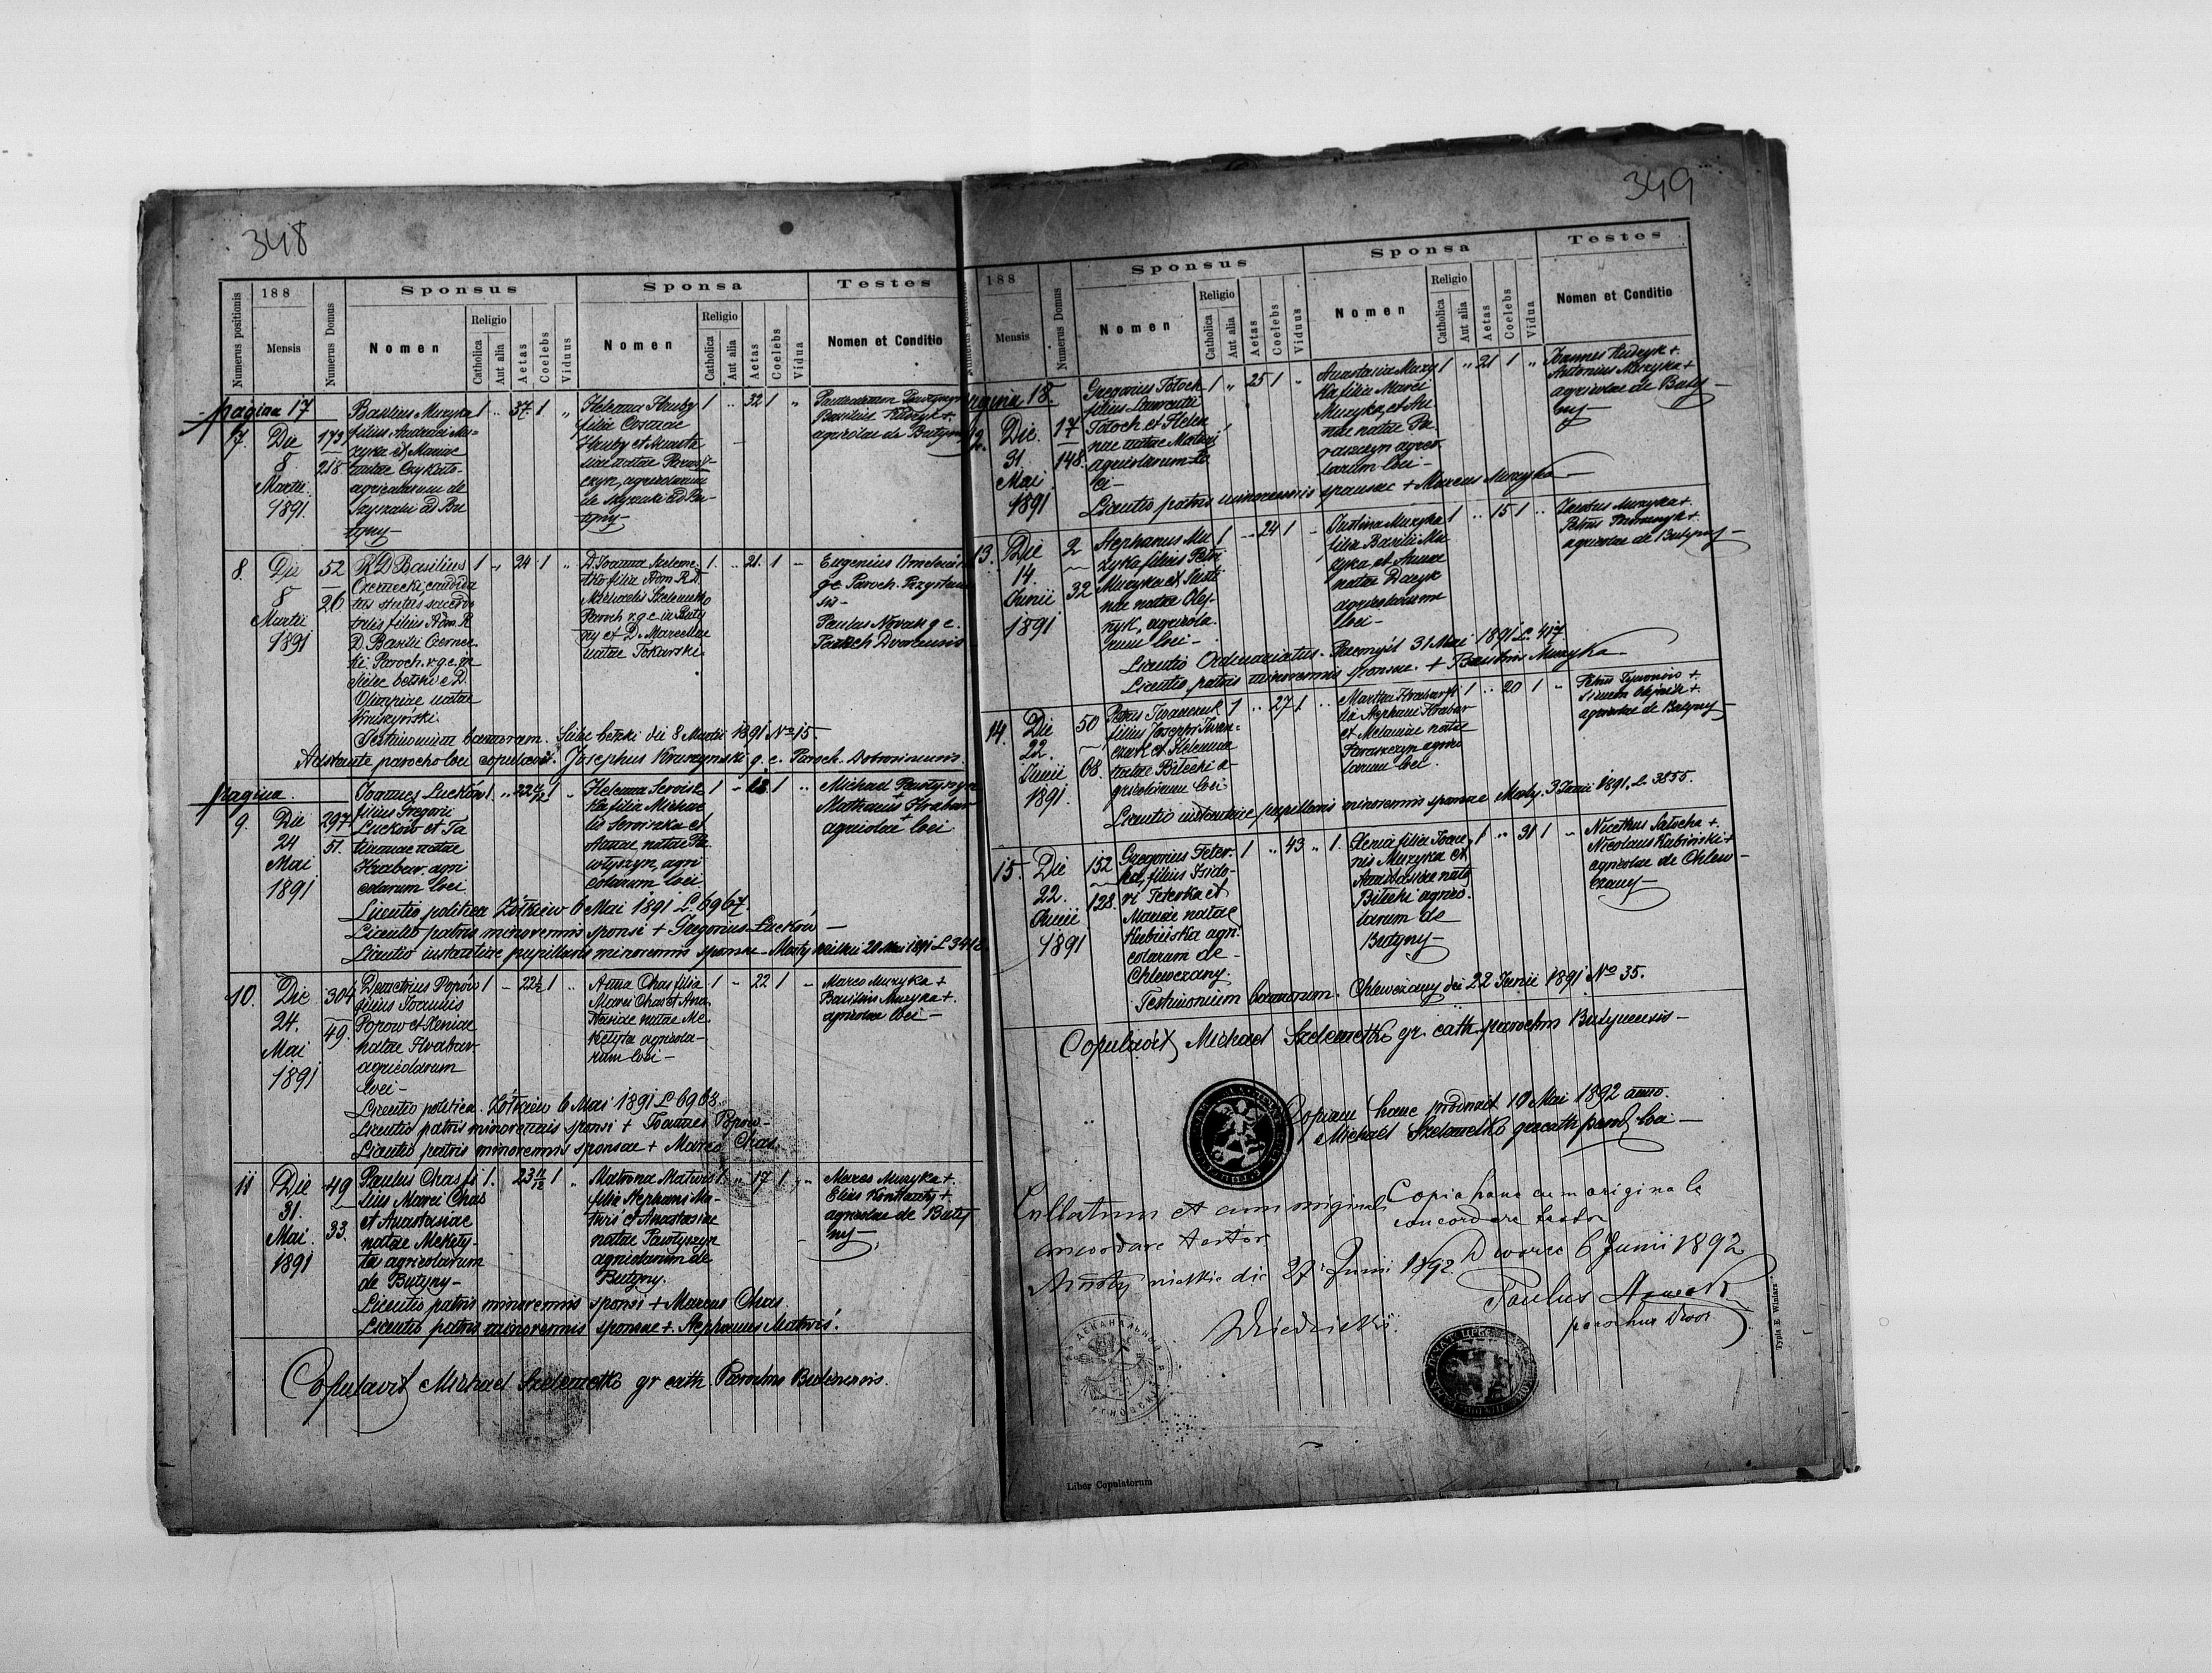 348
Numerus positionis
188
Mensis
Numerus Domus
Sponsus
Nomen
Religio
Catholica
Aut alia
Aetas
Coelebs
Viduus
Sponsa
Nomen
Religio
Catholica
Aut alia
Aetas
Coelebs
Vidua
Testes
Nomen et Conditio
pagina 17
7. Die 8. Martii 1891
173
218
Basilius Muzyka
filius Andreae Mu-
zyka et Mariae
natae
agricolarum de
ad Bu
tyny
1 „ 37 1 „
Helena Hruby
filia Cosmae
Hruby et
natae
agricolarum
de ad Bu-
tyny
1 „ 32 1 „
Basilius +
agricolae de Butyny
8. Die 8 Martii 1891
52
26
R. D. Basilius
Czernecki, candida
tus status sacerdo
talis filius Adm. R.
D. Basilii Czernec
ki Paroch. r. g. c. in
Sielec bełzki et D.
Olimpiae natae
Kruszyński.
1 „ 24 1 „
D. Joanna Szeleme
tko filia Adm. R. D.
Michaelis Szelemetko
Paroch r. g. c. in Buty
ny et D. Marcellae
natae Tokarski.
1. „ 21. 1 –
Eugenius
g c Paroch.
Paulus Nowak g c.
Paroch Dvorcensis
Testimonium bannorum. Sielec bełzki die 8 Martii 1891 No 15.
Adstante parocho loci copulavit Josephus Kruszyński g. c. Paroch.
pagina
9. Die 24 Mai 1891
297
51.
Joannes Luckow
filius Gregorii
Luckow et Ta
tiannae natae
Hrabar agri
colarum loci
1. „ 22 1 „
Helena
filia Michae
lis et
Annae natae Pa
włyszyn, agri
colarum loci
1 – 18 1 „
Michael Pawłyszyn
Mathaeus + Hrabar
agricolae loci
Licentia politica Żółkiew 6 Mai 1891 L. 6967.
Licentia patris minorennis sponsi + Gregorius Luckow –
Licentia instantiae pupillaris minorennis sponsae – Mosty wielkie 20 Mai 1891 L 3418
10. Die 24. Mai 1891
304
49.
Demetrius Popow
filius Joannis
Popow et Xeniae
natae Hrabar
agricolarum
loci –
1 – 22½ 1 „
Anna Chas filia
Marci Chas et Ana
stasiae natae Me
kełyta agricola-
rum loci –
1 – 22 1 –
Marco Muzyka +
Basilius Muzyka +
agricolae loci –
Licentia politica. Żółkiew 6 Mai 1891 L 6968.
Licentia patris minorennis sponsi + Joannes Popow –
Licentia patris minorennis sponsae + Marco Chas.
11 Die 31. Mai 1891
49
33.
Paulus Chas fi
lius Marci Chas
et Anastasiae
natae Mekeły-
ta agricolarum
de Butyny –
1. „ 23 1 „
Matrona Matwis
filia Stephani Ma-
twis et Anastasiae
natae Pawłyszyn
agricolarum de
Butyny.
1. „ 17 1 „
Marcus Muzyka +
Elias +
agricolae de Buty
ny –
Licentia patris minorennis sponsi + Marcus Chas.
Licentia patris minorennis sponsae + Stephanus Matwis.
Copulavit Michael Szelemetko gr cath. Parochus Butinensis.
349
188
Mensis
Numerus Domus
Sponsus
Nomen
Religio
Catholica
Aut alia
Aetas
Coelebs
Viduus
Sponsa
Nomen
Religio
Catholica
Aut alia
Aetas
Coelebs
Vidua
Testes
Nomen et Conditio
pagina 18.
12. Die 31. Mai 1891
17
148.
Gregorius Totoch
filius Laurentii
Totoch et Hele
nae natae
agricolarum lo
ci –
1 „ 25 1 „
Anastasia Muzy
ka filia Marci
Muzyka et An
nae natae Pa
raszczyn agrico
larum loci –
1 „ 21 1 „
Joannes +
Antonius Muzyka +
agricolae de Buty
ny –
Licentia patris minorennis sponsae + Marcus Muzyka
13. Die 14. Junii 1891
2
32
Stephanus Mu
zyka filius Petri
Muzyka et Justi
nae natae Olej-
nyk, agricola
rum loci –
1 – 24 1 –
Justina Muzyka
filia Basilii Mu
zyka et Annae
natae
agricolarum
loci –
1 „ 15 1 „
Jacobus Muzyka +
Petrus +
agricolae de Butyny –
Licentia Ordinariatus. Przemyśl 31 Mai 1891 L. 417.
Licentia patris minorennis sponsae. + Basilius Muzyka
14. Die 22. Junii 1891
50
68.
Petrus Iwanczuk
filius Josephi Iwan-
czuk et Helenae
natae Bilecki a-
gricolarum loci
1 „ 27 1 „
Martha Hrabar fi
lia Stephani Hrabar
et Melaniae natae
Paraszczyn agrico
larum loci.
1 „ 20 1 „
Petrus Tymoniw +
Simeon Olijnik +
agricolae de Butyny –
Licentia instantiae pupillaris minorennis sponsae Mosty. 3 Junii 1891. L. 3855.
15. Die 22. Junii 1891
152
128.
Gregorius Teter-
ka, filius Isido-
ri Teterka et
Mariae natae
Kubińska agri
colarum de
Chlewczany.
1 „ 43 „ 1.
Xenia filia Joan
nis Muzyka et
Anastasiae natae
Bilecki agrico
larum de
Butyny –
1 „ 31 1 „
Nicethus Sałocha +
Nicolaus Kubiński +
agricolae de Chlew
czany –
Testimonium bannorum. Chlewczany die 22 Junii 1891 No 35.
Copulavit Michael Szelemetko gr. cath. parochus Butynensis –
Copiam hanc produxit 10 Mai 1892 anno.
Michael Szelemetko gr cath paroch loci –
Collatum et cum originali
concordare testor.
Mosty wielkie die 27 Junii 1892.
Copia hanc cum originale
concordare testor
Dworce 6 Junii 1892
Paulus Nowak
parochus Dvor
Typis E. Winiarz
Liber Copulatorum